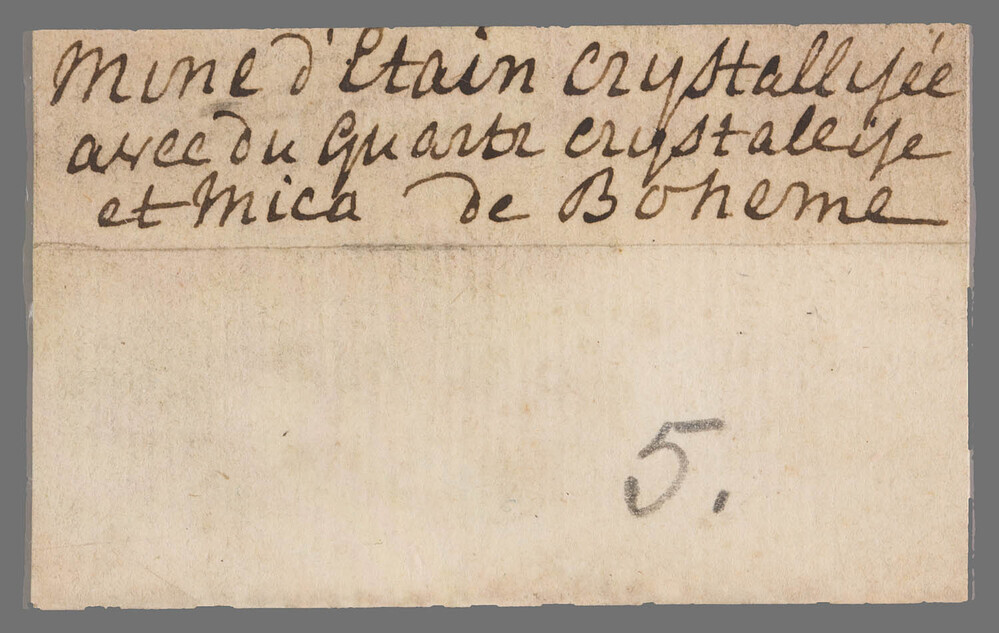 Mine d'Etain crystallisée
avec du Quartz crystallise
et Mica de Boheme
5.